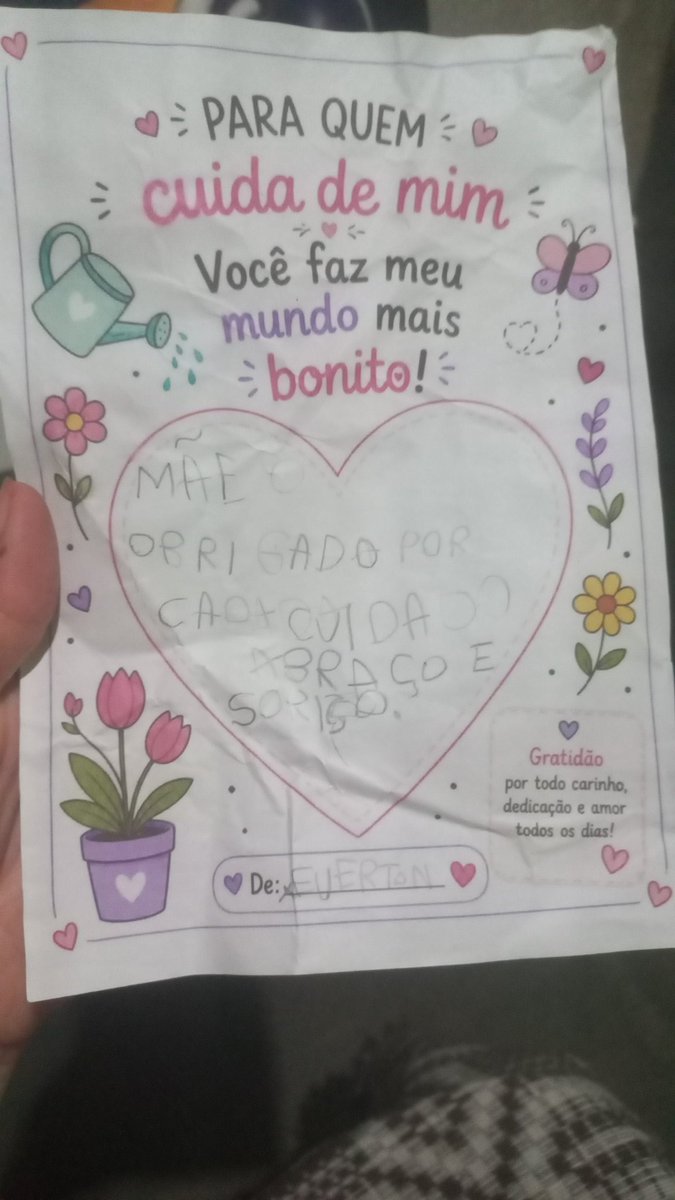 PARA QUEM
cuida de mim
Você faz meu
mundo mais
bonito!
MÃE
OBRIGADO POR
CADA CUIDADO
ABRAÇO E
SORISO.
Gratidão
por todo carinho,
dedicação e amor
todos os dias!
De: EVERTON